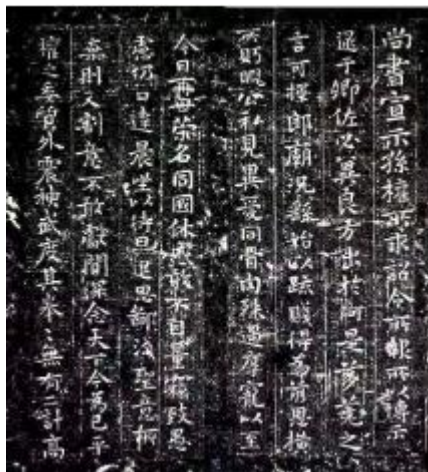 尚書宣示孫權所求詔令所報所以博示
逮于卿佐必冀良方出於阿是芻蕘之
言可擇郎廟況繇始以疏賤得為前恩橫
所盱睨公私見異愛同骨肉殊遇厚寵以至
今日再世榮名同國休慼敢不自量竊致愚
慮仍日達晨坐以待旦退思鄙淺聖意所
棄則又割意不敢獻聞深念天下今為已平
權之委質外震神武度其拳〻無有二計高